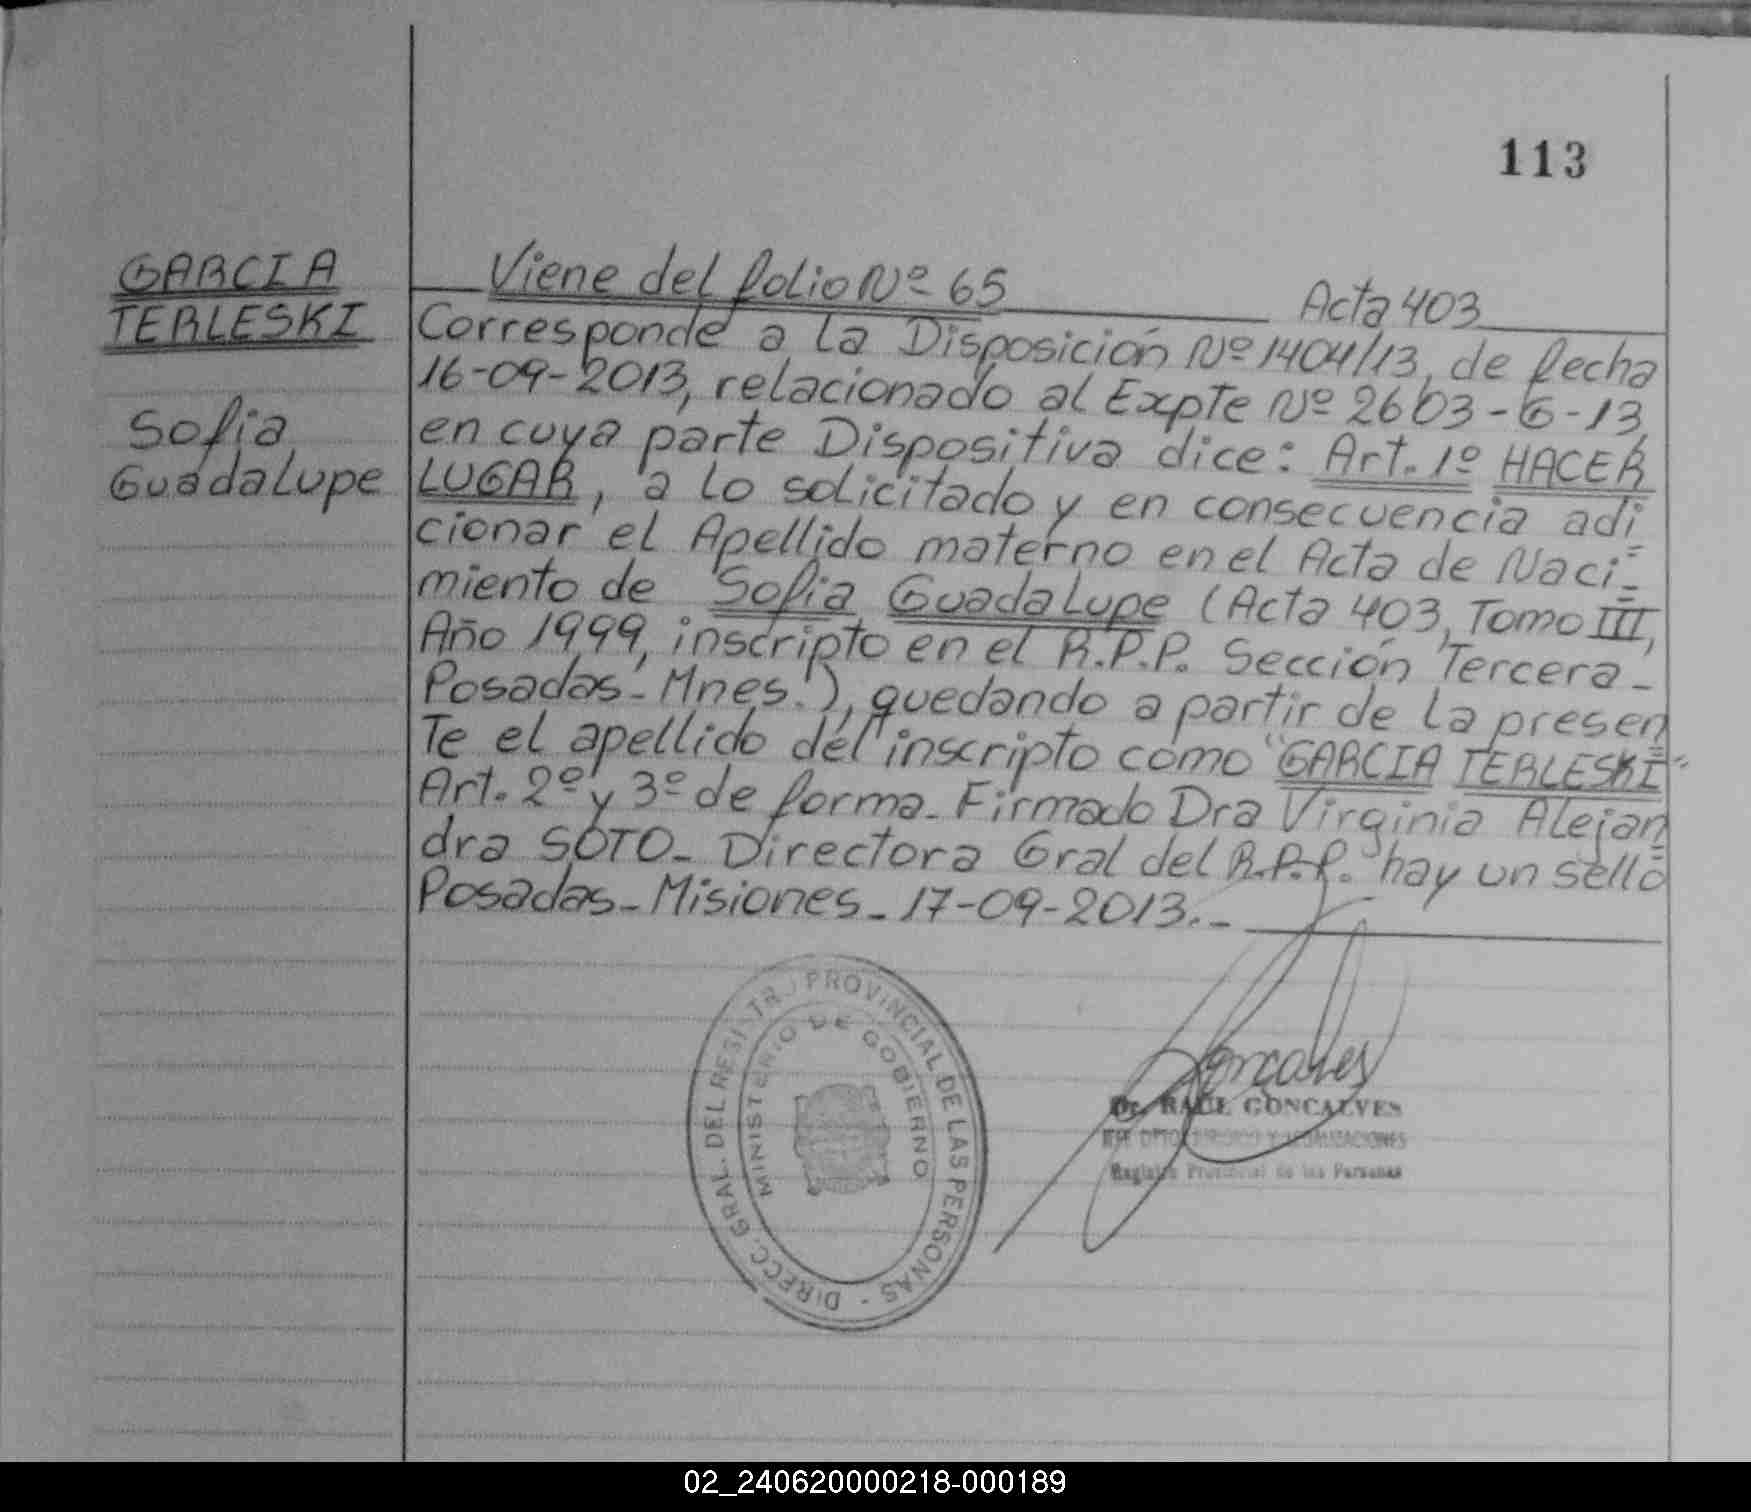 113
GARCIA
TERLESKI
Sofia
Guadalupe
Viene del folio Nº 65 Acta 403
Corresponde a la Disposición Nº 1404/13, de fecha
16-09-2013, relacionado al Expte Nº 2603-G-13
en cuya parte Dispositiva dice: Art. 1º HACER
LUGAR, a lo solicitado y en consecuencia adi
cionar el Apellido materno en el Acta de Naci=
miento de Sofia Guadalupe (Acta 403, Tomo III,
Año 1999, inscripto en el R.P.P. Sección Tercera-
Posadas-Mnes.), quedando a partir de la presen=
te el apellido del inscripto como "GARCIA TERLESKI"
Art. 2º y 3º de forma. Firmado Dra Virginia Alejan=
dra SOTO- Directora Gral del R.P.P. hay un sello
Posadas-Misiones- 17-09-2013.-
DIRECC. GRAL. DEL REGISTRO PROVINCIAL DE LAS PERSONAS -
MINISTERIO DE GOBIERNO
Goncalves
Dr. RAUL GONCALVES
JEFE DPTO JURIDICO Y
Registro Provincial de las Personas
02_240620000218-000189